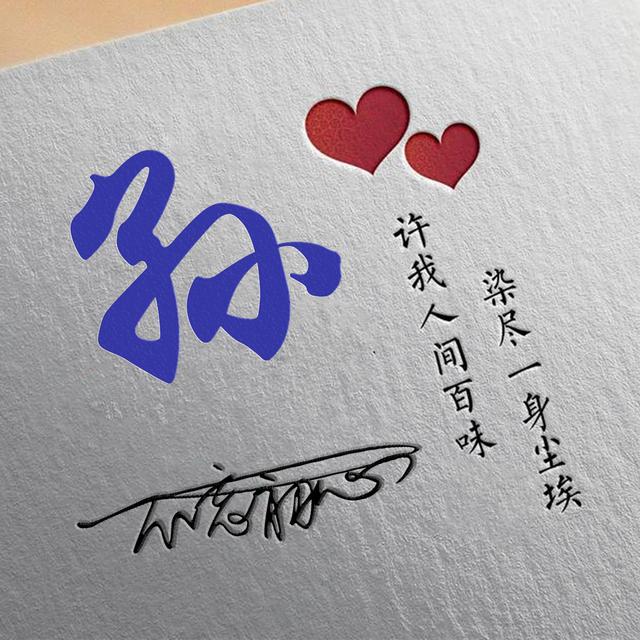 孙
许我人间百味
染尽一身尘埃